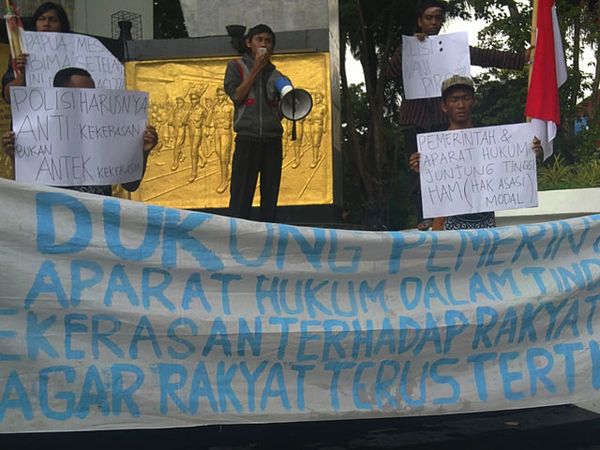 PAPUA, MES
BIMA, SETELAH
INI
POLISI HARUSNYA
ANTI KEKERASAN
BUKAN
ANTEK KEKERASAN
PEMERINTAH &
APARAT HUKUM
JUNJUNG TINGGI
HAM (HAK ASASI
MODAL)
DUKUNG PEMERINTA
APARAT HUKUM DALAM TIND
EKERASAN TERHADAP RAKYAT
AGAR RAKYAT TERUS TERTI